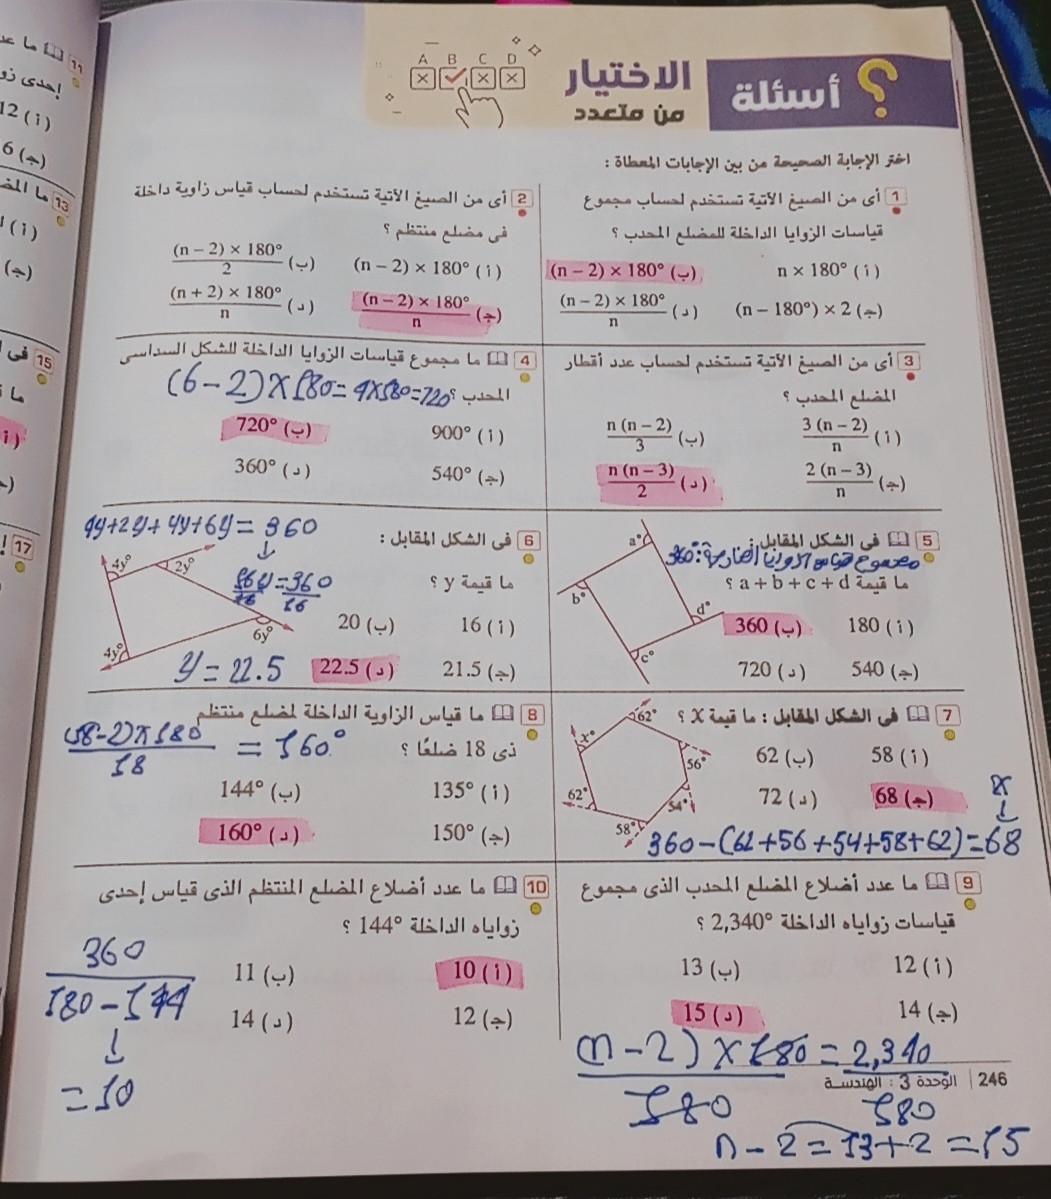 A B C D
أسئلة الاختيار من متعدد
اختر الإجابة الصحيحة من بين الإجابات المعطاة :
1 أى من الصيغ الآتية تستخدم لحساب مجموع
قياسات الزوايا الداخلة للمضلع المحدب ؟
(أ) n × 180°
(ب) (n − 2) × 180°
(جـ) (n − 180°) × 2
(د) (n − 2) × 180° / n
2 أى من الصيغ الآتية تستخدم لحساب قياس زاوية داخلة
فى مضلع منتظم ؟
(أ) (n − 2) × 180°
(ب) (n − 2) × 180° / 2
(جـ) (n − 2) × 180° / n
(د) (n + 2) × 180° / n
3 أى من الصيغ الآتية تستخدم لحساب عدد أقطار
المضلع المحدب ؟
(أ) 3 (n − 2) / n
(ب) n (n − 2) / 3
(جـ) 2 (n − 3) / n
(د) n (n − 3) / 2
4 ما مجموع قياسات الزوايا الداخلة للشكل السداسى
المحدب ؟
(6 − 2) × 180 = 4×180 = 720
(أ) 900°
(ب) 720°
(جـ) 540°
(د) 360°
5 فى الشكل المقابل :
مجموع قياس الزوايا الخارجة = 360°
ما قيمة a + b + c + d ؟
(أ) 180
(ب) 360
(جـ) 540
(د) 720
a°
b°
c°
d°
6 فى الشكل المقابل :
4y+2y+4y+6y = 360
ما قيمة y ؟
16y/16 = 360/16
(أ) 16
(ب) 20
(جـ) 21.5
(د) 22.5
y = 22.5
4y°
2y°
6y°
4y°
7 فى الشكل المقابل : ما قيمة x ؟
(أ) 58
(ب) 62
(جـ) 68
(د) 72
x°
62°
56°
54°
58°
62°
x
360 − (62+56+54+58+62) = 68
8 ما قياس الزاوية الداخلة لمضلع منتظم
ذى 18 ضلعًا ؟
(18−2)×180 / 18 = 160°
(أ) 135°
(ب) 144°
(جـ) 150°
(د) 160°
9 ما عدد أضلاع المضلع المحدب الذى مجموع
قياسات زواياه الداخلة 2,340° ؟
(أ) 12
(ب) 13
(جـ) 14
(د) 15
(n − 2) × 180 / 180 = 2,340 / 180
n − 2 = 13 + 2 = 15
10 ما عدد أضلاع المضلع المنتظم الذى قياس إحدى
زواياه الداخلة 144° ؟
(أ) 10
(ب) 11
(جـ) 12
(د) 14
360 / 180 − 144
= 10
246 | الوحدة 3 : الهندسة
11
إحدى
(أ) 12
(جـ) 6
13
(أ)
(جـ)
15
(أ)
17